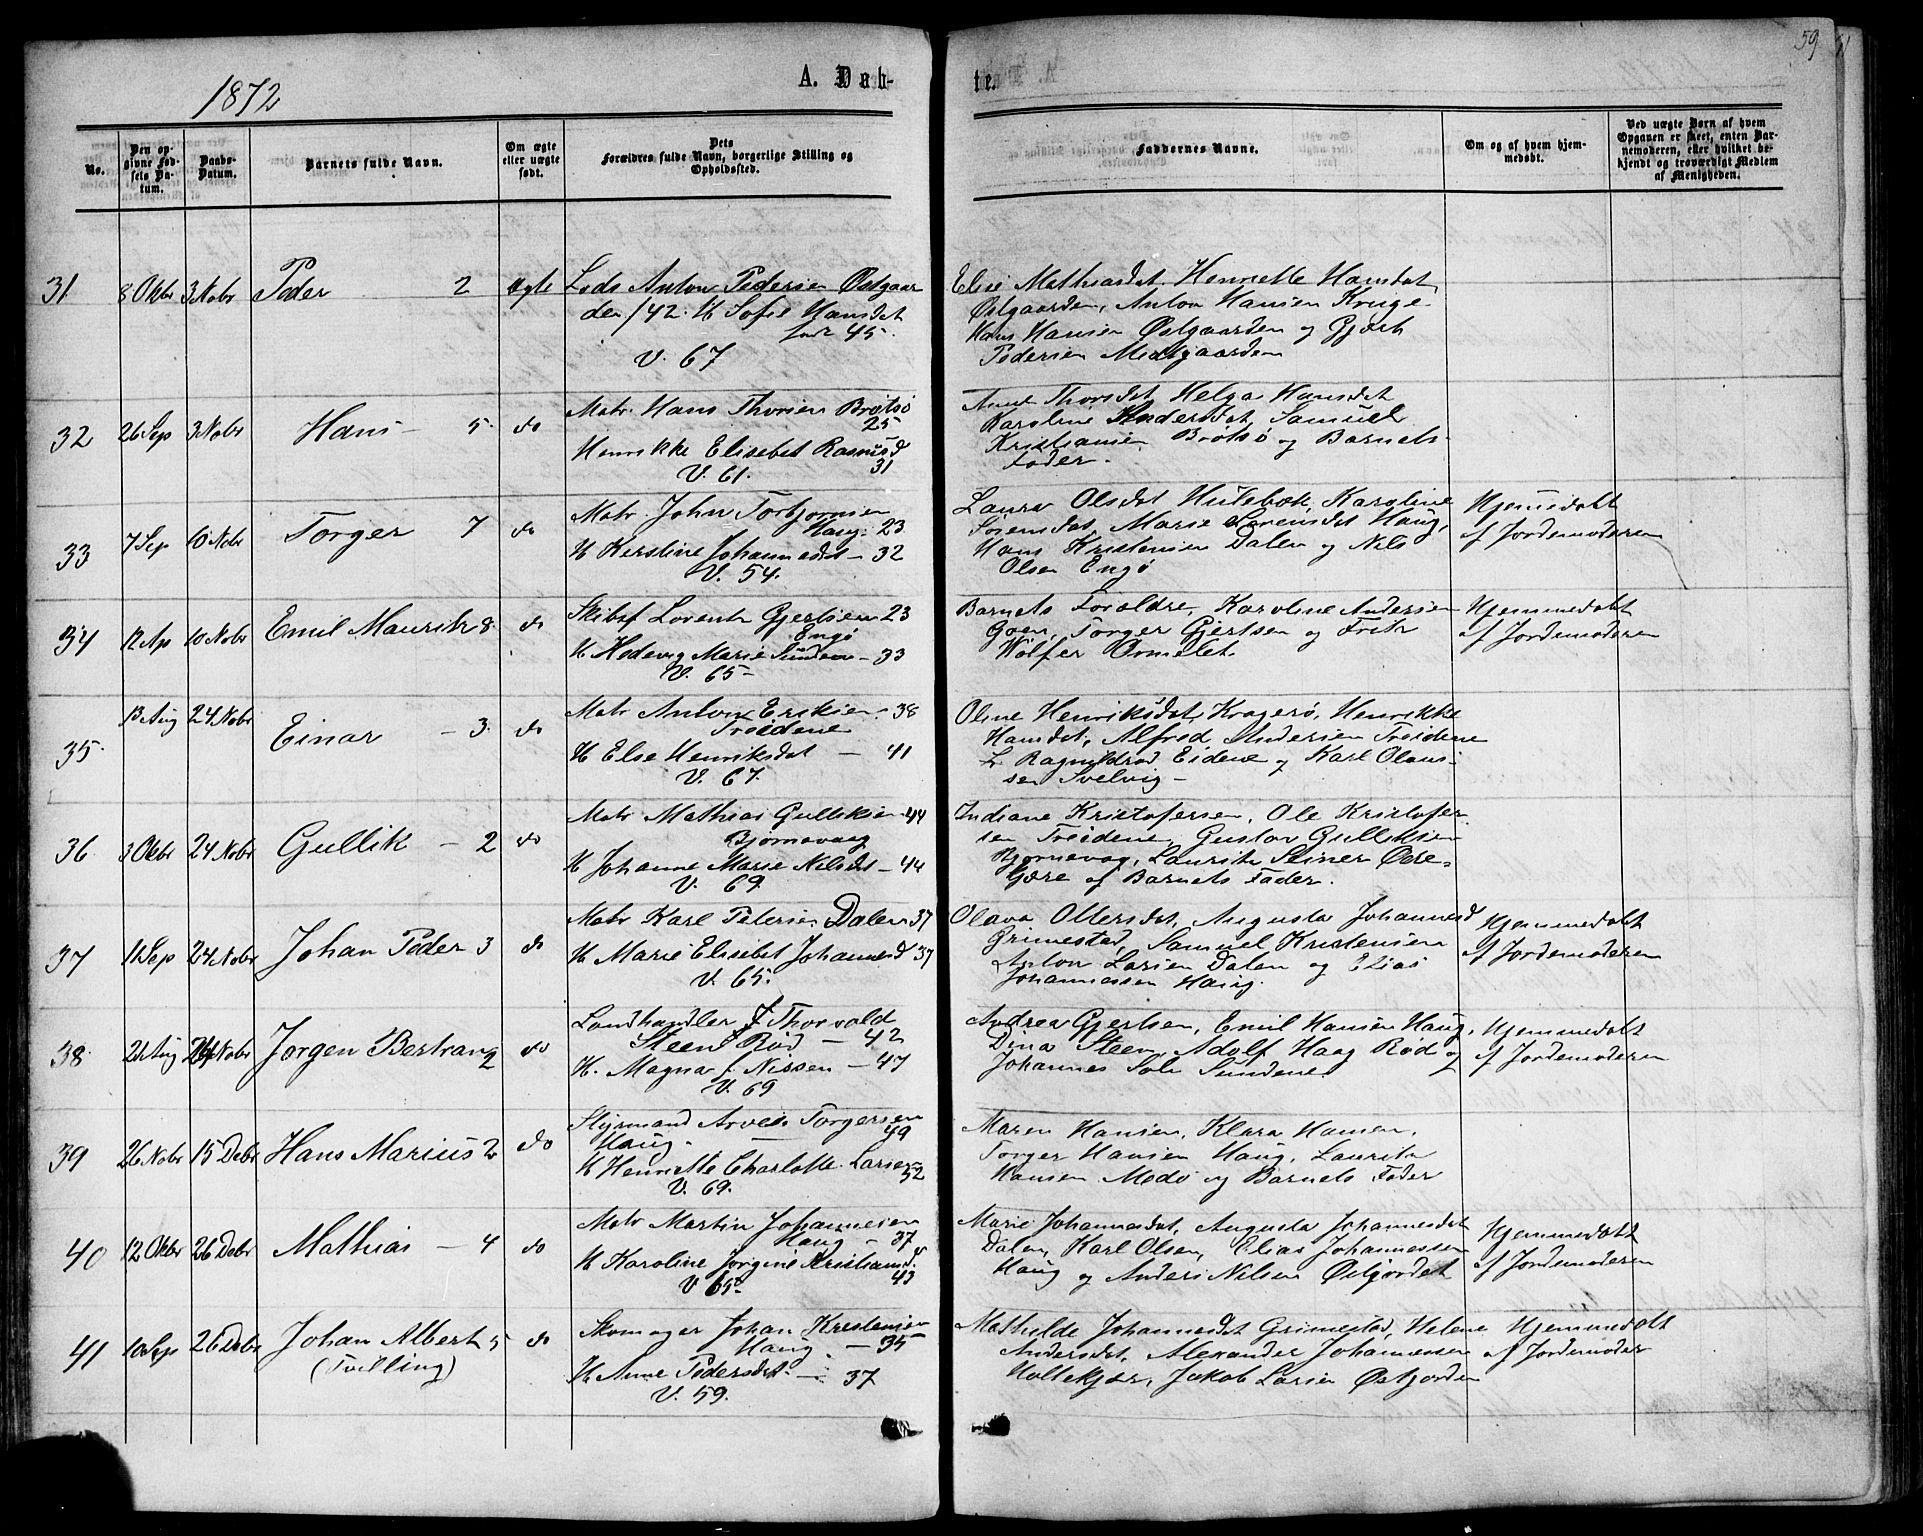 59
1872
A. Dab-
te.
No.
Den op-
givne Fød-
sels Da-
tum.
Daabs-
Datum.
Barnets fulde Navn.
Om ægte
eller uægte
født.
Dets
Forældres fulde Navn, borgerlige Stilling og
Opholdssted.
Faddernes Navne.
Om og af hvem hjem-
medøbt.
Ved uægte Børn af hvem
Opgaven er skeet, enten Bar-
nemoderen, eller hvilket be-
kjendt og troværdigt Medlem
af Menigheden.
31 8 Oktbr 3 Nobr Peder 2 ægte
Lods Anton Pedersen Østgaar
den /42. H Sofie Hansdat
født 45.
V. 67
Elise Mathiasdat, Henriette Hansdat
Østgaarden, Anton Hansen Kruge
Hans Hansen Østgaarden og Gjert
Pedersen Medtgaarden
32 26 Sep 3 Nobr Hans - 5. do
Matr. Hans Thorsen Brøtsø
25
Henrikke Elisebet Rasmusd
31
V. 61.
Anne Thorsdat Helga Hansdat
Karoline Andersdat, Samuel
Kristiansen Brøtsø og Barnets
Fader.
33 7 Sep 10 Nobr Torger 7 do
Matr. John Torbjørnsen
Haug. 23
H Kerstine Johannesdat - 32
V. 54.
Laura Olsdat Hulebæk, Karoline
Sørensdat, Marie Sørensdat Haug,
Hans Kristensen Dalen og Nils
Olsen Engø
Hjemmedøbt
af Jordemoderen
34 12 Ap 10 Nobr Emil Mauritz 8. do
Skibsf Lorentz Gjertsen 23
Engø
H Hedevig Marie Sundene - 33
V. 65-
Barnets Forældre, Karoline Andersen
Goen, Torger Gjertsen og Fritz
Wølfer Ormelet.
Hjemmedøbt
af Jordemoderen
35. 13 Aug 24 Nobr Einar - 3. do
Matr Anton Eriksen. 38
Treidene
H Else Henriksdat - 41
V. 67.
Oline Henriksdat, Kragerø, Henrikke
Hansdat, Alfred Andersen Treidene
L Ragnildrød Eidene og Karl Olaus-
sen Svelvig -
36. 3 Oktbr 24 Nobr Gullik - 2 do
Matr Mathias Gulliksen 44
Bjørnevaag
H Johanne Marie Nilsdat - 44
V. 69.
Indiane Kristofersen, Ole Kristofer
sen Treidene, Gustav Gulliksen
Bjørnevaag, Lauritz Steiner Øvre-
Gjære af Barnets Fader.
37 11 Sep 24 Nobr Johan Peder 3 do
Matr Karl Petersen Dalen 37
H Marie Elisebet Johannesd 37
V. 65.
Olava Ottersdat, Augusta Johannesd
Grimestad, Samuel Kristensen
Anton Larsen Dalen og Elias
Johannessen Haug.
Hjemmedøbt
af Jordemoderen
38. 21 Aug 24 Nobr Jørgen Bertran 2 do
Landhandler J Thorvald
Steen Rød - 42
H. Magna f. Nissen - 47
V. 69
Andrea Gjertsen, Emil Hansen Haug,
Dina Steen Adolf Haag Rød og
Johannes Sole Sundene.
Hjemmedøbt
af Jordemoderen
39 26 Nobr 15 Debr Hans Marius 2 do
Styrmand Arves Torgersen
Haug. - 49
H Henriette Charlotte Larsen
52
V. 69.
Maren Hansen, Klara Hansen,
Torger Hansen Haug, Lauritz
Hansen Medø og Barnets Fader
40 12 Oktbr 26 Debr Mathias - 4 do
Matr Martin Johannesen
Haug - 37
H Karoline Jørgine Kristiansd.
43
V 65.
Marie Johannesdat, Augusta Johannesdat
Dalen, Karl Olsen, Elias Johannessen
Haug og Anders Nilsen Østjordet
Hjemmedøbt
af Jordemoderen
41 10 Sep 26 Debr Johan Albert 5 do
(Tvilling)
Skomager Johan Kristensen
Haug. - 35
H Anne Pedersdat - 37
V. 59.
Mathilde Johannesdat Grimestad, Helene
Andersdat, Alexander Johannessen
Holtekjær, Jakob Larsen Østjorden
Hjemmedøbt
af Jordemoder